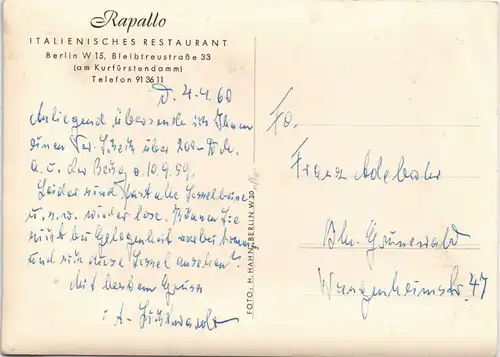 Rapallo
ITALIENISCHES RESTAURANT
Berlin W 15, Bleibtreustraße 33
(am Kurfürstendamm)
Telefon 91 36 11
d. 4.4.60
Anliegend übersende ich Ihnen
einen Ver. Scheck über 200.- DM.
a. u. der Bezug v. 10.9.59.
Leider sind fast alle Sesselbeine
u.s.w. wieder lose. Können Sie
nicht bei Gelegenheit vorbei kommen
und sich diese Sessel ansehen?
Mit bestem Gruss
Fa.
Franz
Bln. Grunewald
Wangenheimstr 47
FOTO: H. HAHN, BERLIN W 30